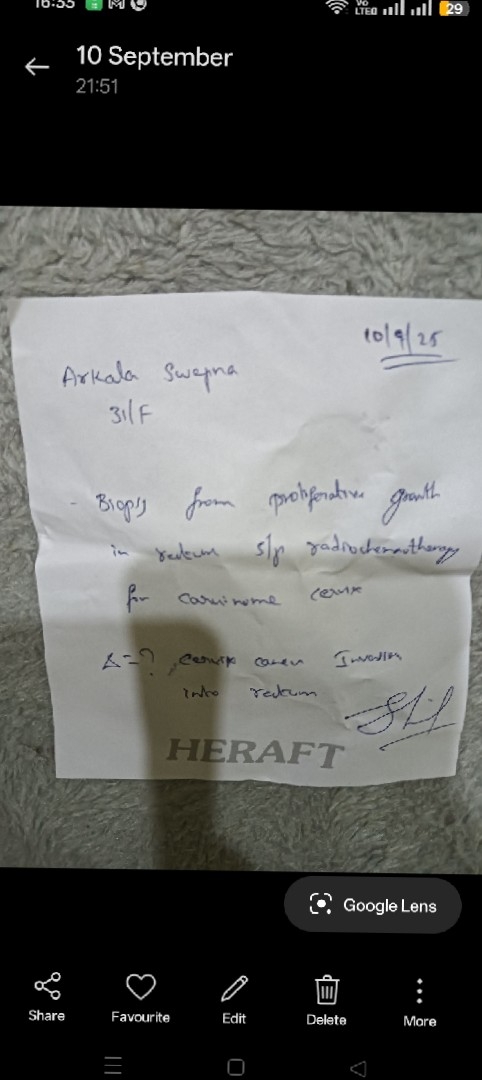 16:33
Vo
LTE
29
10 September
21:51
10/9/25
Arkala Swapna
31/F
- Biopsy from proliferative growth
in rectum s/p radiochemotherapy
for carcinoma cervix
Δ=? cervix cancer Invasion
into rectum
HERAFT
Google Lens
Share
Favourite
Edit
Delete
More